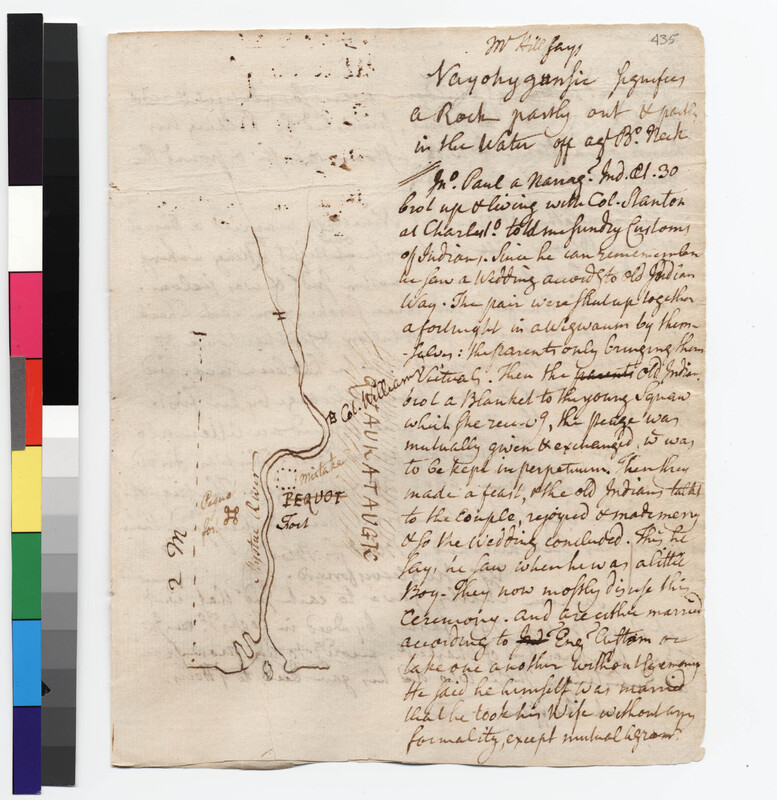 435
Mr Hill says
Nayohygunsic signifies
a Rock partly out & partly
in the Water off agt Bo. Neck
Jno. Paul a Narrag. Ind. Æt. 30
brot up & living with Col. Stanton
at Charlesto. told me sundry Customs
of Indians. Since he can remember
he saw a Wedding accordg to old Indian
Way. The pair were shut up together
a fortnight in a Wigwaum by them
-selves: the Parents only bringing them
Victuals. Then the parents old Indian
brot a Blanket to the young Squaw
which she recd. 9, the peage was
mutually given & exchanged, wc was
to be kept in perpetuum. Then they
made a feast, & the old Indians talkt
to the Couple, rejoyced & made merry
& so the Wedding concluded. This he
says he saw when he was a little
Boy. They now mostly disuse this
Ceremony. and are either married
according to Ind Eng Custom or
take one another without Ceremony
He said he himself was married
that he took his Wife without any
formality, except mutual Agreemt.
Col. Williams
TAUKATAUGK
mistake
PEQUOT
Fort
Pequo
for.
Mystic River
2 M